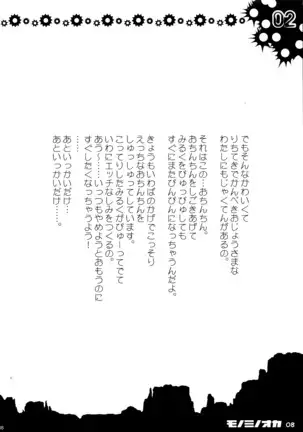 02
でもそんなかわいくて
りちてきでかんぺきおじょうさまな
わたしにもじゃくてんがあるの。
それはこの…おちんちん。
おちんちんをしごきあげて
みるくをぴゅっぴゅしても
すぐにまたびんびんになっちゃうんだよ。
きょうもいわばのかげでこっそり
えっちなおちんちんを
しゅっしゅってしています。
こってりしたみるくがびゅーってでて
いわにエッチなしみをつくるの。
あう〜……いつもやめようとおもうのに
すぐしたくなっちゃうよう！
………
あといっかいだけ……。
あといっかいだけ……。
モノミノオカ 08